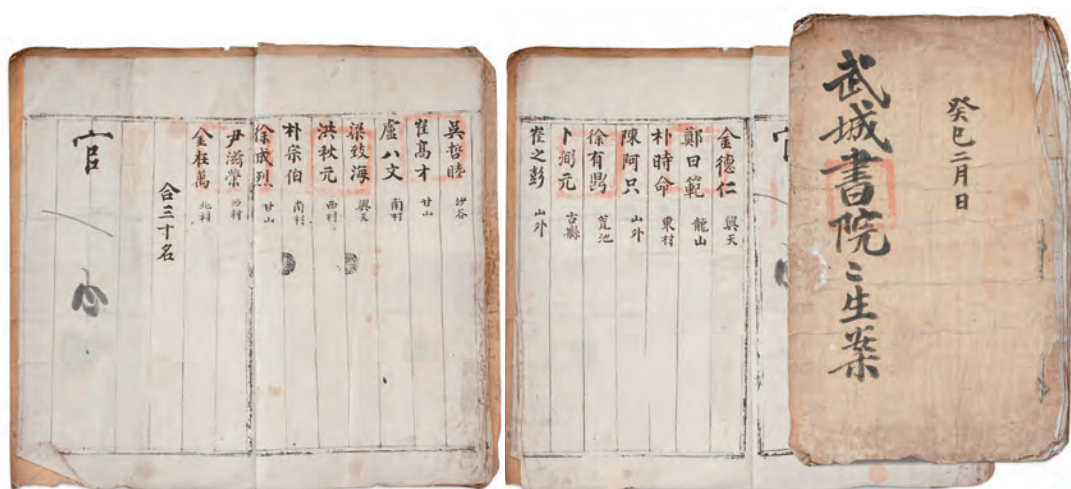 癸巳二月日
武城書院〻生案
金德仁 興天
鄭日範 龍山
朴時命 東村
陳阿只 山外
徐有 瓮池
卜弼元 古縣
崔之彭 山外
吳哲睦 沙谷
崔高才 甘山
盧八文 南村
梁致海 興天
洪秋元 西村
朴宗伯 南村
徐成烈 甘山
尹滋榮 西村
金在萬 北村
合三十名
官